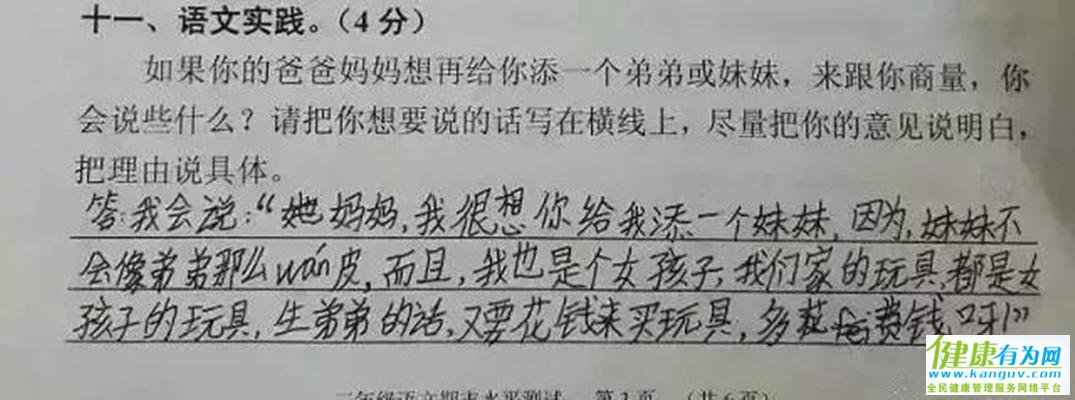 十一、语文实践。（4分）
如果你的爸爸妈妈想再给你添一个弟弟或妹妹，来跟你商量，你
会说些什么？请把你想要说的话写在横线上，尽量把你的意见说明白，
把理由说具体。
答：我会说：“她妈妈，我很想你给我添一个妹妹，因为，妹妹不
会像弟弟那么wán皮，而且，我也是个女孩子，我们家的玩具，都是女
孩子的玩具，生弟弟的话，又要花钱来买玩具，多花费钱呀！”
健康有为网
www.kanguv.com
全民健康管理服务网络平台
二年级语文期末水平测试 第5页 （共6页）